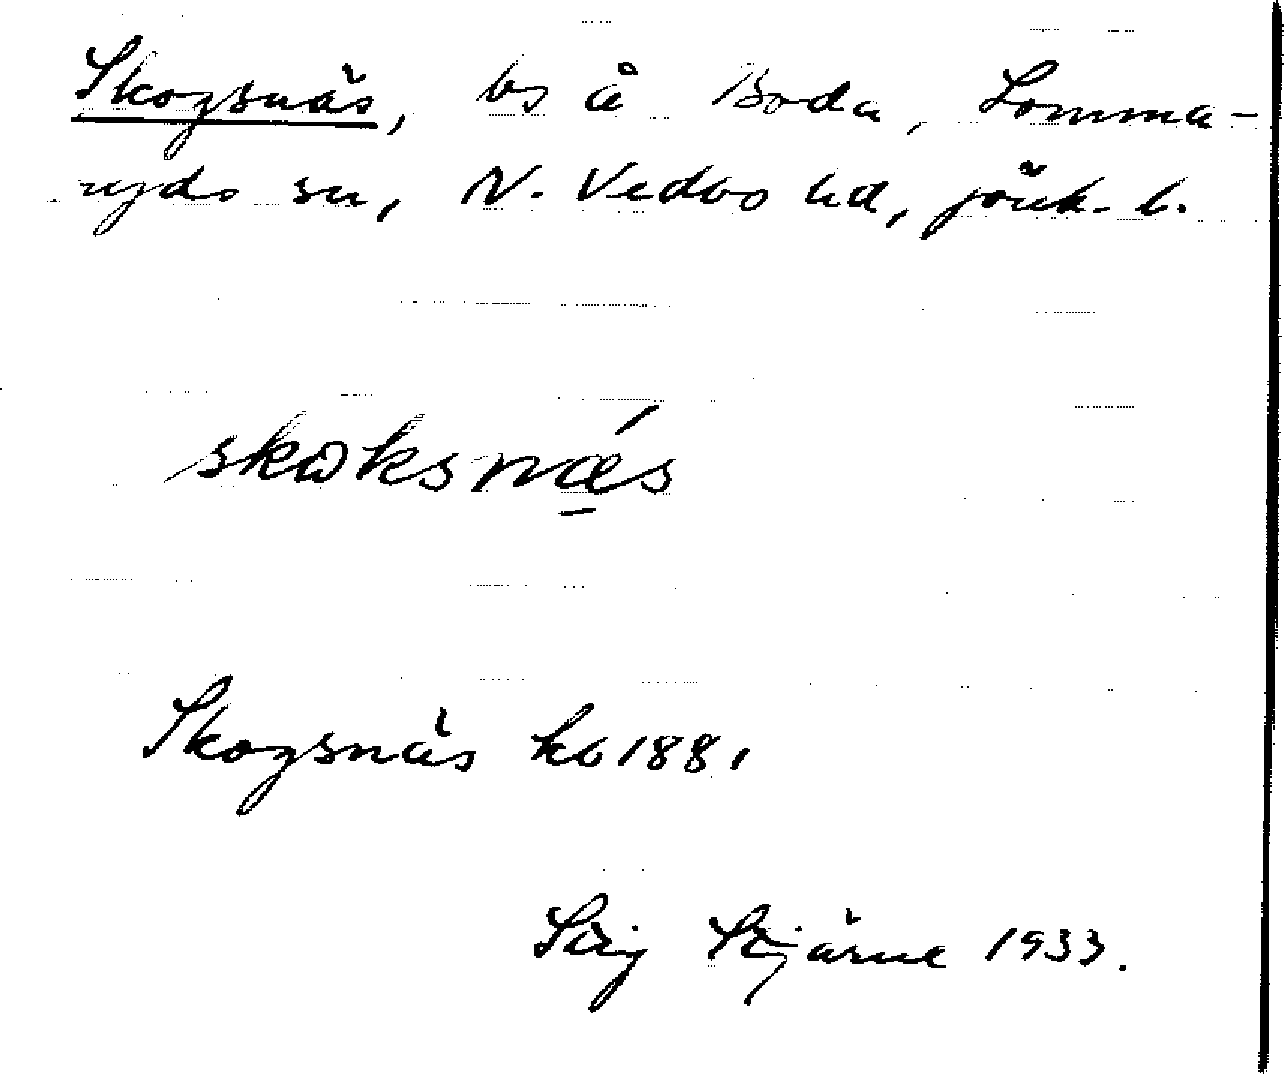 Skogsnäs, bs å Boda, Lomma-
ryds sn, N. Vedbo hd, Jönk. l.
skɷksnǽs
Skogsnäs kb 1881
Stjärne 1933.